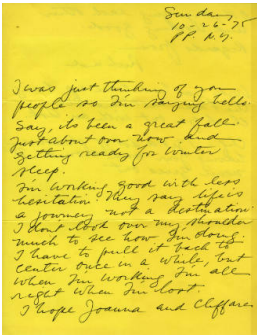 Sunday
10-26-75
P.P. N.Y.
I was just thinking of you
people so I'm saying hello.
Say, it's been a great fall.
Just about over now and
getting ready for winter
sleep.
I'm working good with less
hesitation. They say life is
a journey not a destination.
I don't look over my shoulder
much to see how I'm doing.
I have to pull it back to
center once in a while, but
when I'm working I'm all
right when I'm lost.
I hope Joanna and Cliff are